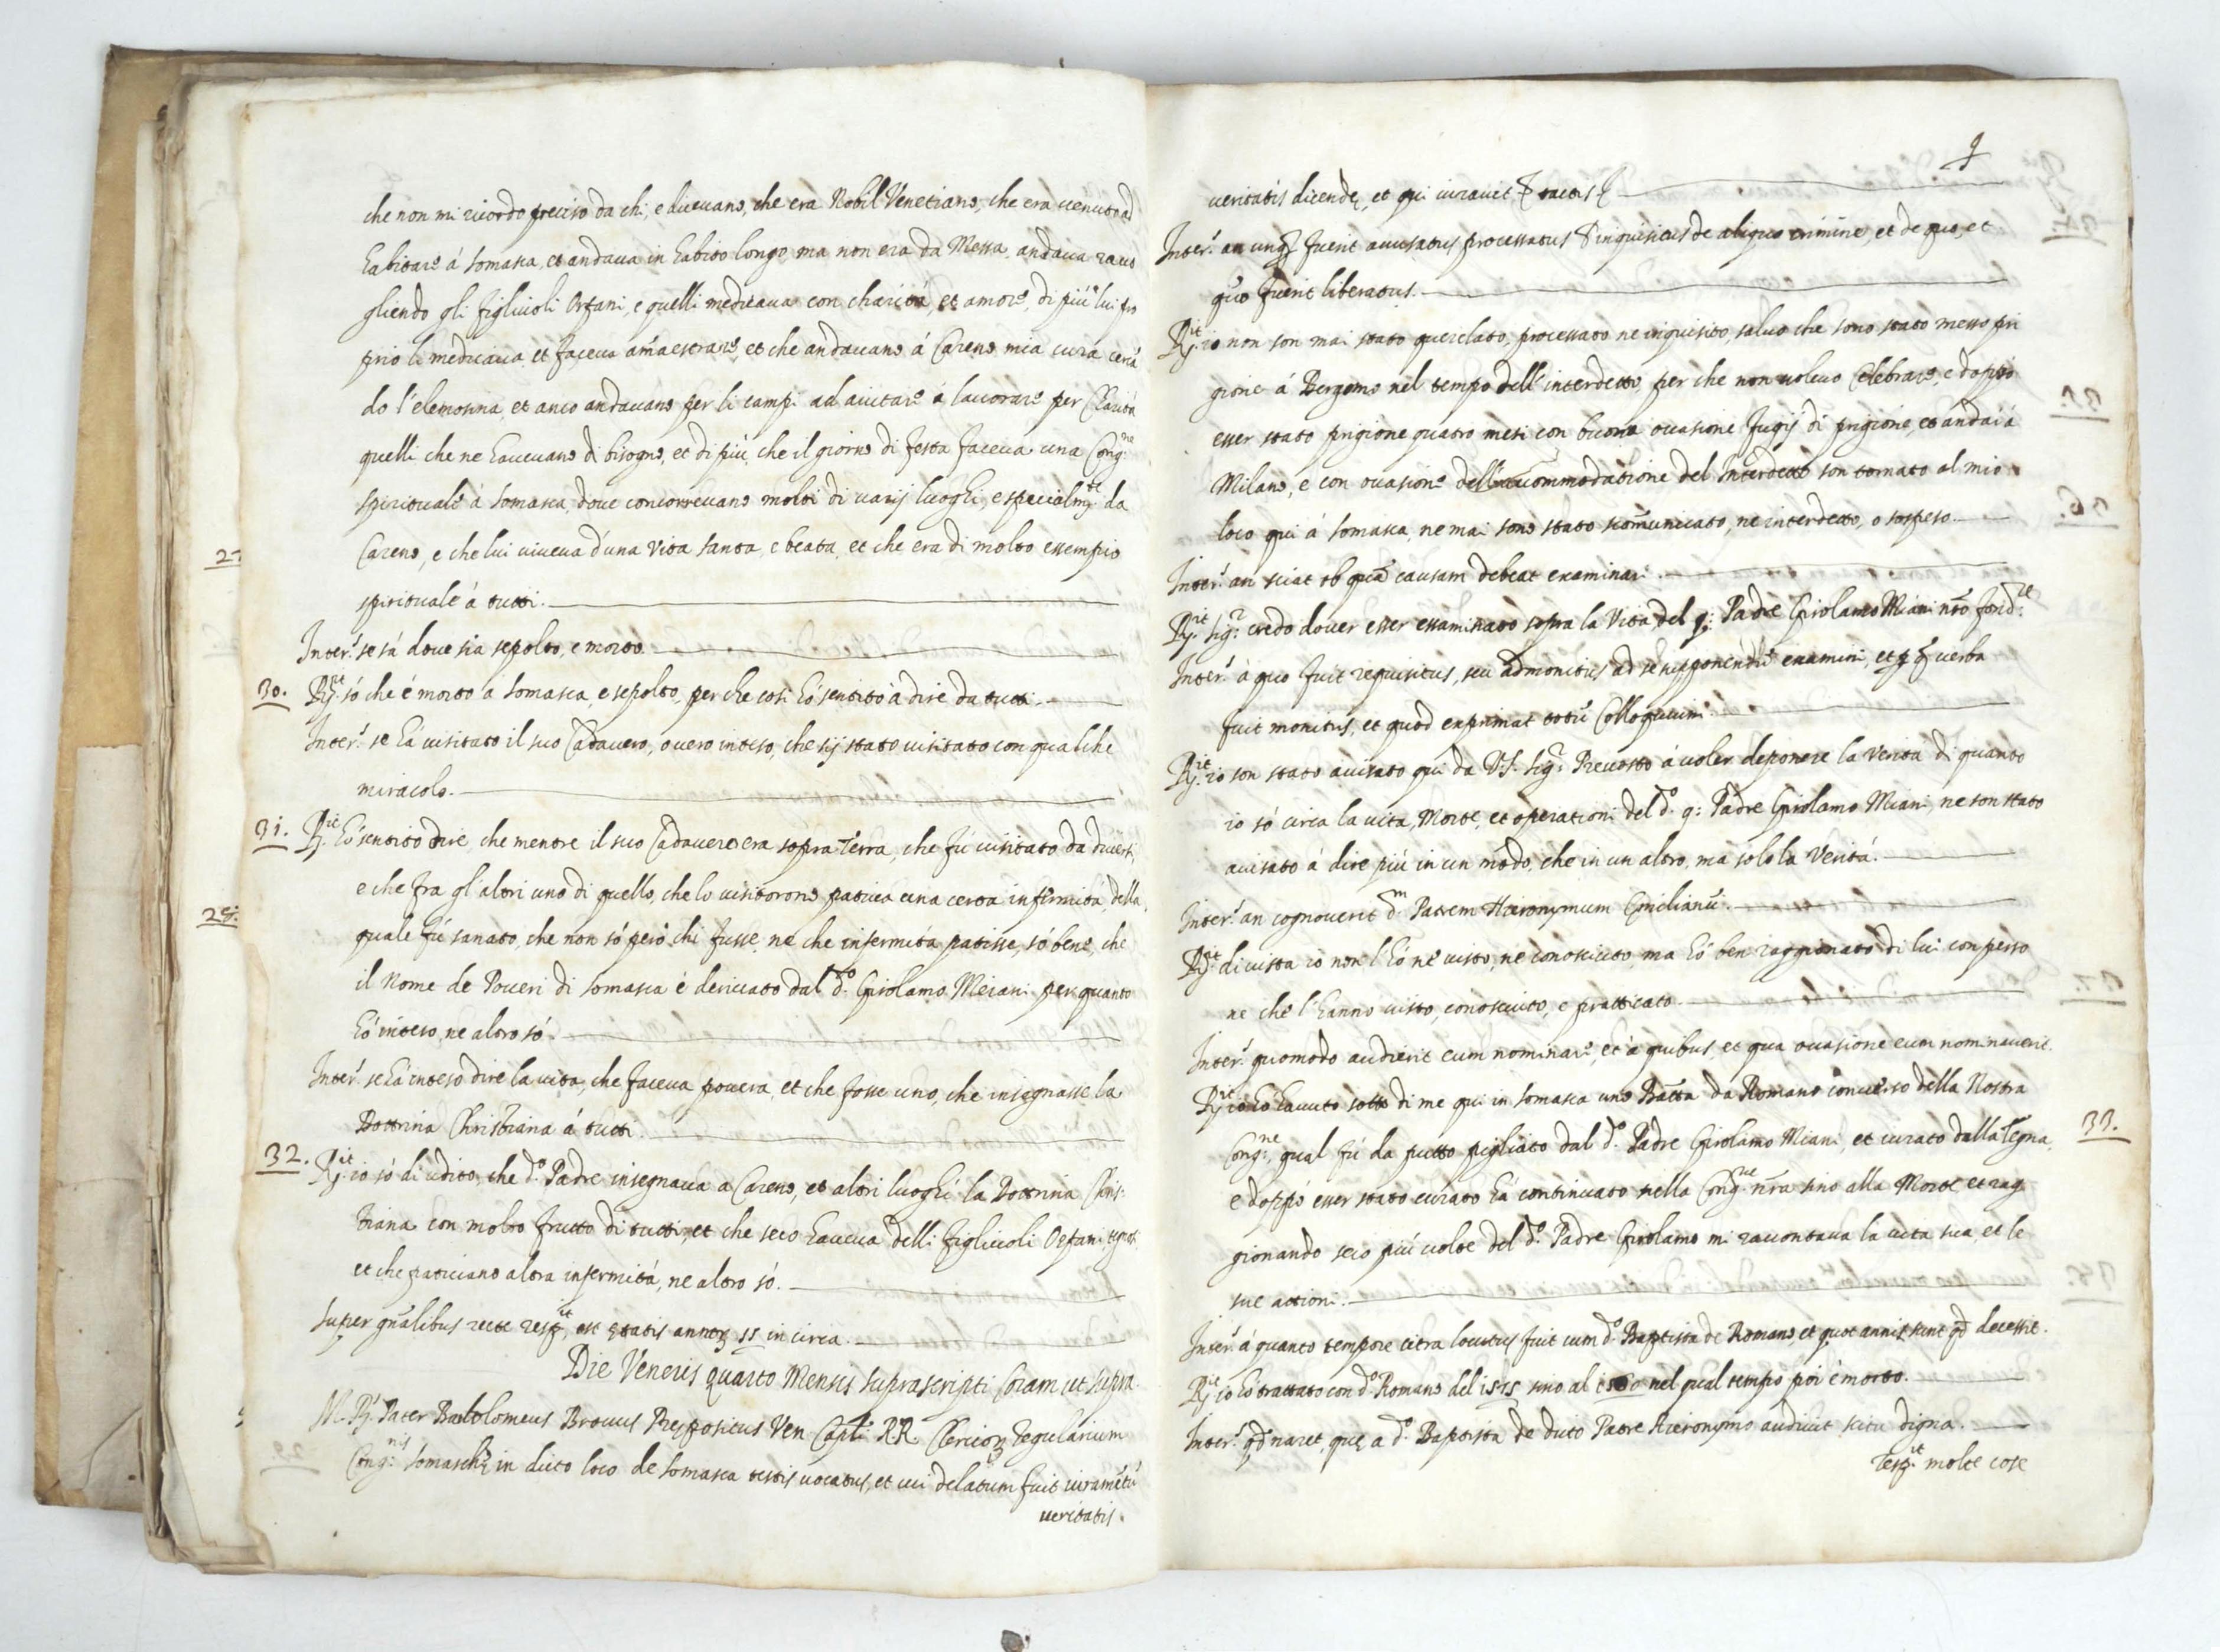 che non mi ricordo preciso da chi, e diceuano, che era Nobil Venetiano, che era uenuto ad
habitare á Somasca, et andaua in habito longo ma non era da Messa, andaua racco
gliendo gli figliuoli Orfani, e quelli medicaua con charitá, et amore, di piú lui pro
prio li medicaua et faceua amaestrare, et che andauano á Careno mia cura cercā
do l'elemosina, et anco andauano per li campi ad aiutare á lauorare per Charitá
quelli che ne haueuano di bisogno, et di piú, che il giorno di festa faceua una Cong.ne
spirituale á Somasca, doue concorreuano molti di uarij luoghi, e specialmte da
Careno, e che lui uiueua d'una Vita santa, e beata, et che era di molto essempio
spirituale á tutti.
Inter.s se sá doue sia sepolto, e morto.
30. Rit só che é morto á Somasca, e sepolto, per che cosi hó sentito á dire da tutti.
Inter.s se há uisitato il suo Cadauero, ouero inteso, che sij stato uisitato con qualche
miracolo.
31. Rit hó sentito dire, che mentre il suo Cadauero era sopra Terra, che fú uisitato da diuersi,
e che fra gl'altri uno di quello, che lo uisitorono patiua una certa infirmitá, della
quale fú sanato, che non só peró chi fusse, ne che infermitá patisse, só bene, che
il Nome de Poueri di Somasca é deriuato dal d.o Girolamo Meiani per quanto
hó inteso, ne altro só.
Inter.s se há inteso dire la uita, che faceua pouera, et che fosse uno, che insegnasse la
Dottrina Christiana á tutti.
32. Rit io só di udito, che d.o Padre insegnaua a Careno, et altri luoghi la Dottrina Chris:
tiana con molto frutto di tutti, et che seco haueua delli figliuoli Orfani,
et che patiuano altra infermitá, ne altro só.
Super gñalibus recte resp.it, est ętatis annoꝝ 55 in circa.
Die Veneris quarto Mensis suprascripti Coram ut supra
M. R. Pater Bartolomeus Brocus Prępositus Ven. Capli RR. Clericoꝝ Regularium
Cong.nis Somaschę in dicto loco de Somasca testis uocatus, et cui delatum fuit iuramētū
ueritatis.
9
ueritatis dicendę, et qui iurauit tactis
Inter.s an unq̄ fuerit accusatus processatus inquisitus de aliquo crimine, et de quo, et
quo fuerit liberatus.
Rit io non son mai stato querelato, processato ne inquisito, saluo che sono stato messo pri
gione á Bergomo nel tempo dell'interdetto, per che non uoleuo Celebrare, e doppo
esser stato prigione quatro mesi con buona ouasione fugij di prigione, et andai á
Milano, e con ouasione dell'accommodatione del Interdetto son tornato al mio
loco qui á Somasca, ne mai sono stato scomunicato, ne interdetto, o sospeso.
Inter.s an sciat ob quā causam debeat examinari.
Rit Sig.r credo douer esser essaminato sopra la Vita del q: Padre Girolamo Miani nr̄o fond.re
Inter.s á quo fuit requisitus, seu admonitus ad se supponendū examini, et verba
fuit monitus, et quod exprimat totū Colloquium.
Rit io son stato auisato qui da VS. Sig.r Preuosto á uoler deponere la veritá di quanto
io só circa la uita, Morte, et operationi del d.o q: Padre Girolamo Miani, ne son stato
auisato á dire piú in un modo, che in un altro, ma solo la Veritá.
Inter.s an cognouerit d.m Patrem Hieronymum Emilianū.
Rit di uista io non l'hó né uisto, ne conosciuto, ma hó ben raggionato di lui con perso
ne che l'hanno uisto, conosciuto, e pratticato.
Inter.s quomodo audierit eum nominare, et á quibus, et qua ouasione eum nominauerit.
Rit io hó hauuto sotto di me qui in Somasca uno Batta da Romano conuerso della Nostra
Cong.ne, qual fú da putto pigliato dal d.o Padre Girolamo Miani, et curato dalla Tegna,
e doppo esser stato curato há continuato nella Cong.ne nr̄a sino alla Morte et rag
gionando seco piú uolte del d.o Padre Girolamo mi raccontaua la uita sua, et le
sue attioni.
33.
Inter.s á quanto tempore citra locutus fuit cum d.o Baptista de Romano, et quot annis sunt q̄d decessit.
Rit io hó trattato con d.o Romano del 1575 sino al nel qual tempo poi é morto.
Inter.s q̄d naret, quę a d.o Baptista de dicto Patre Hieronymo audiuit scitu digna.
Resp.it molte cose